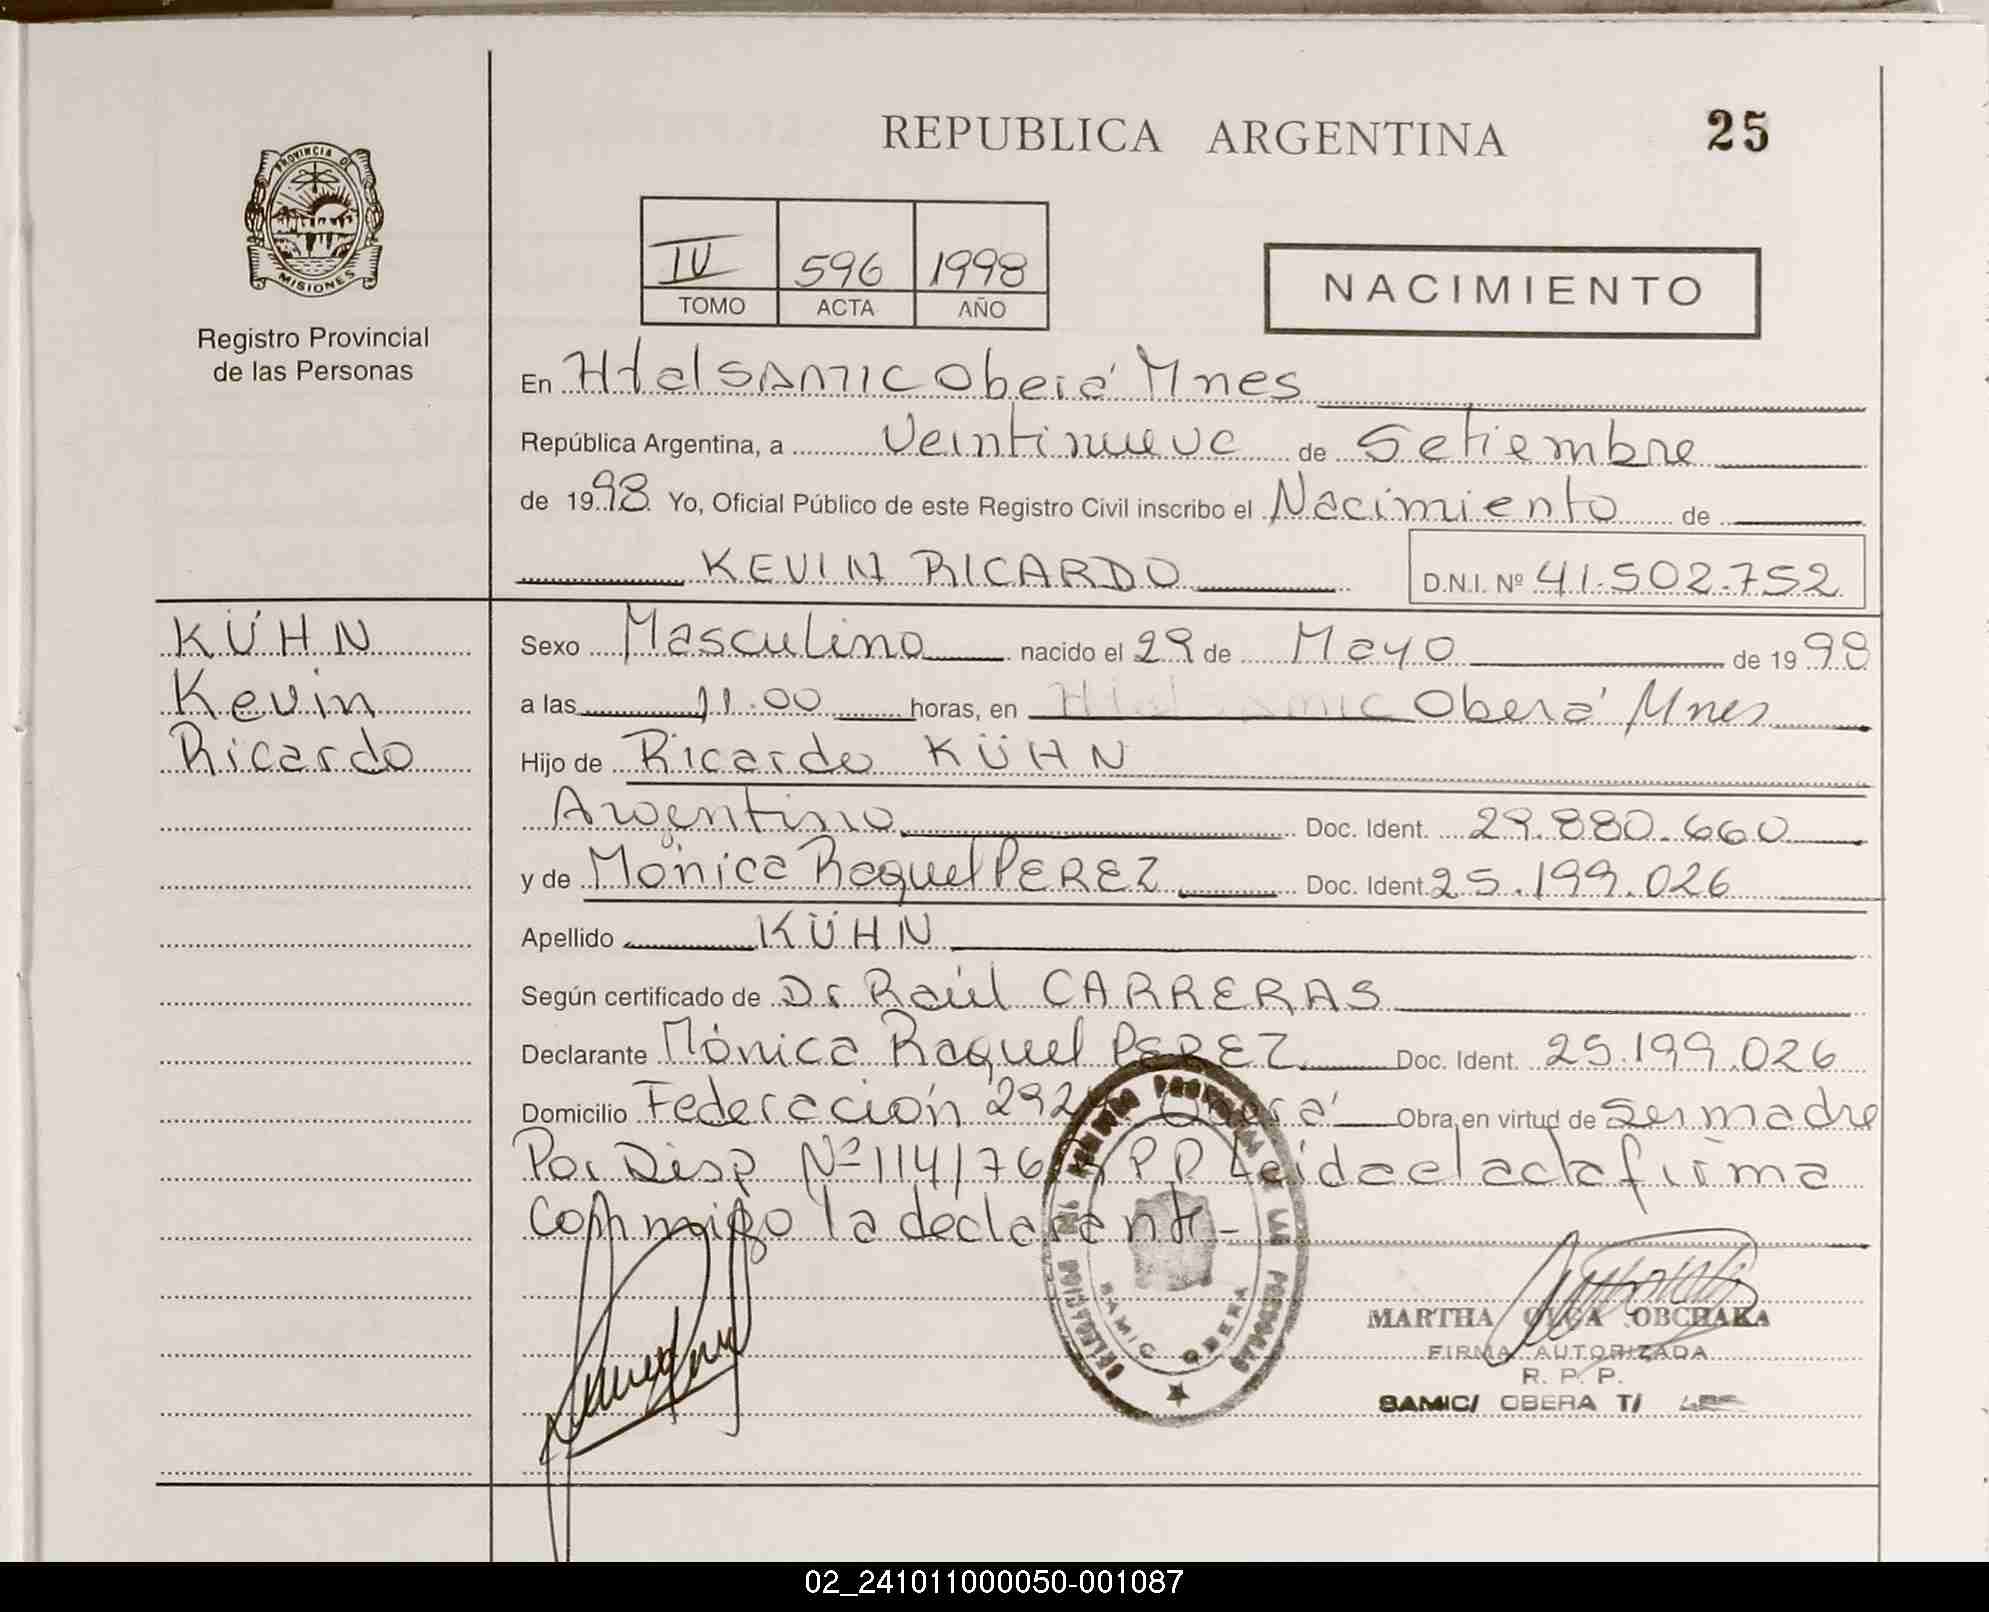 REPUBLICA ARGENTINA
25
PROVINCIA DE
MISIONES
Registro Provincial
de las Personas
IV 596 1998
TOMO ACTA AÑO
NACIMIENTO
En Htal SAMIC Oberá Mnes
República Argentina, a Veintinueve de Setiembre
de 1998 Yo, Oficial Público de este Registro Civil inscribo el Nacimiento de
KEVIN RICARDO
D.N.I. Nº 41.502.752
KÜHN
Kevin
Ricardo
Sexo Masculino nacido el 29 de Mayo de 1998
a las 11.00 horas, en Htal Samic Oberá Mnes
Hijo de Ricardo KÜHN
Argentino Doc. Ident. 29.880.660
y de Mónica Raquel PEREZ Doc. Ident. 25.199.026
Apellido KÜHN
Según certificado de Dr Raúl CARRERAS
Declarante Mónica Raquel PEREZ Doc. Ident. 25.199.026
Domicilio Federación Oberá Obra en virtud de ser madre
Por Disp Nº 114/76 R.P.P. Leida el acta firma
conmigo la declarante-
SAMIC OBERA
MARTHA OLGA OBCHAKA
FIRMA AUTORIZADA
R. P. P.
SAMIC/ OBERA T/
02_241011000050-001087